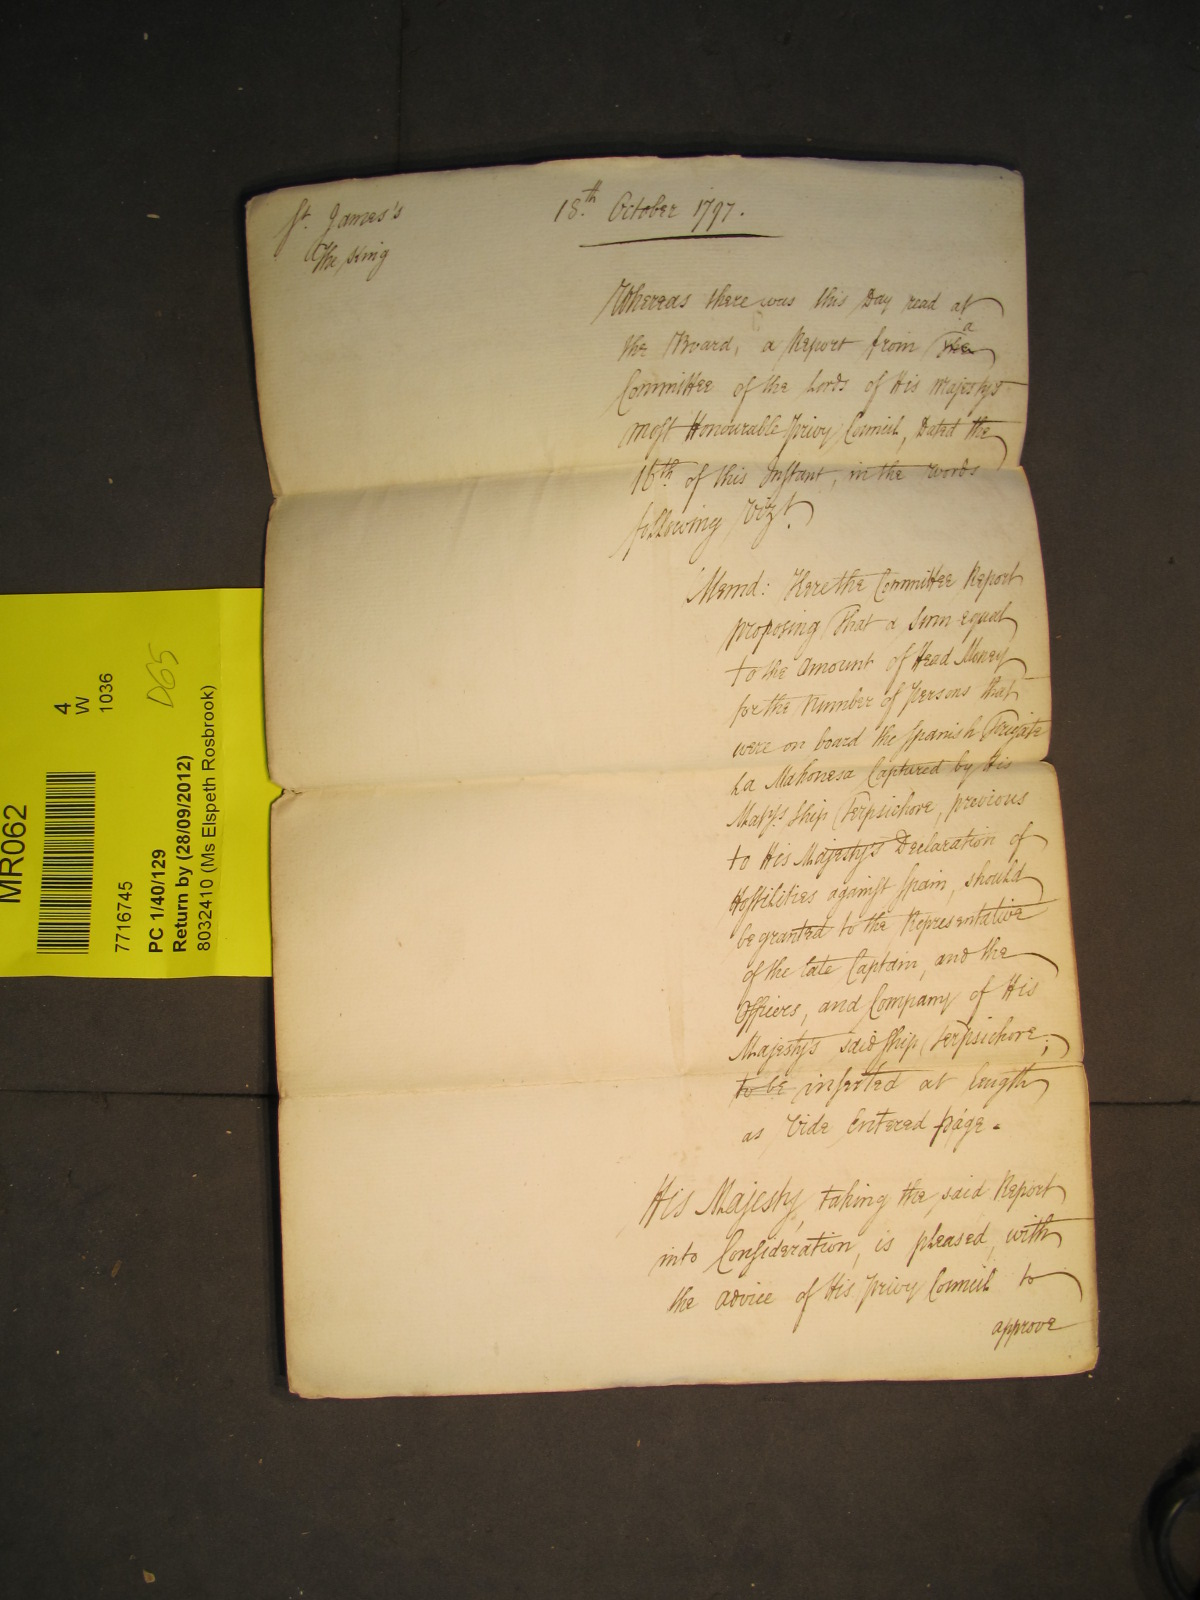 St. James's
18.th October 1797.
The King
Whereas there was this Day read at
the Board, a Report from the a
Committee of the Lords of His Majesty's
most Honourable Privy Council, Dated the
16th of this Instant, in the words
following Vizt.
Memd: Here the Committee Report
proposing That a Sum equal
to the Amount of Head Money
for the Number of Persons that
were on board the Spanish Frigate
La Mahonesa Captured by His
Matys. Ship Terpsichore, previous
to His Majesty's Declaration of
Hostilities against Spain, should
be granted to the Representative
of the late Captain, and the
Officers, and Company of His
Majesty's said Ship Terpsichore;
to be inserted at length
as Vide Entered page.
His Majesty, taking the said Report
into Consideration, is pleased, with
the advice of His Privy Council to
approve
MR062
4
W
1036
D65
7716745
PC 1/40/129
Return by (28/09/2012)
8032410 (Ms Elspeth Rosbrook)